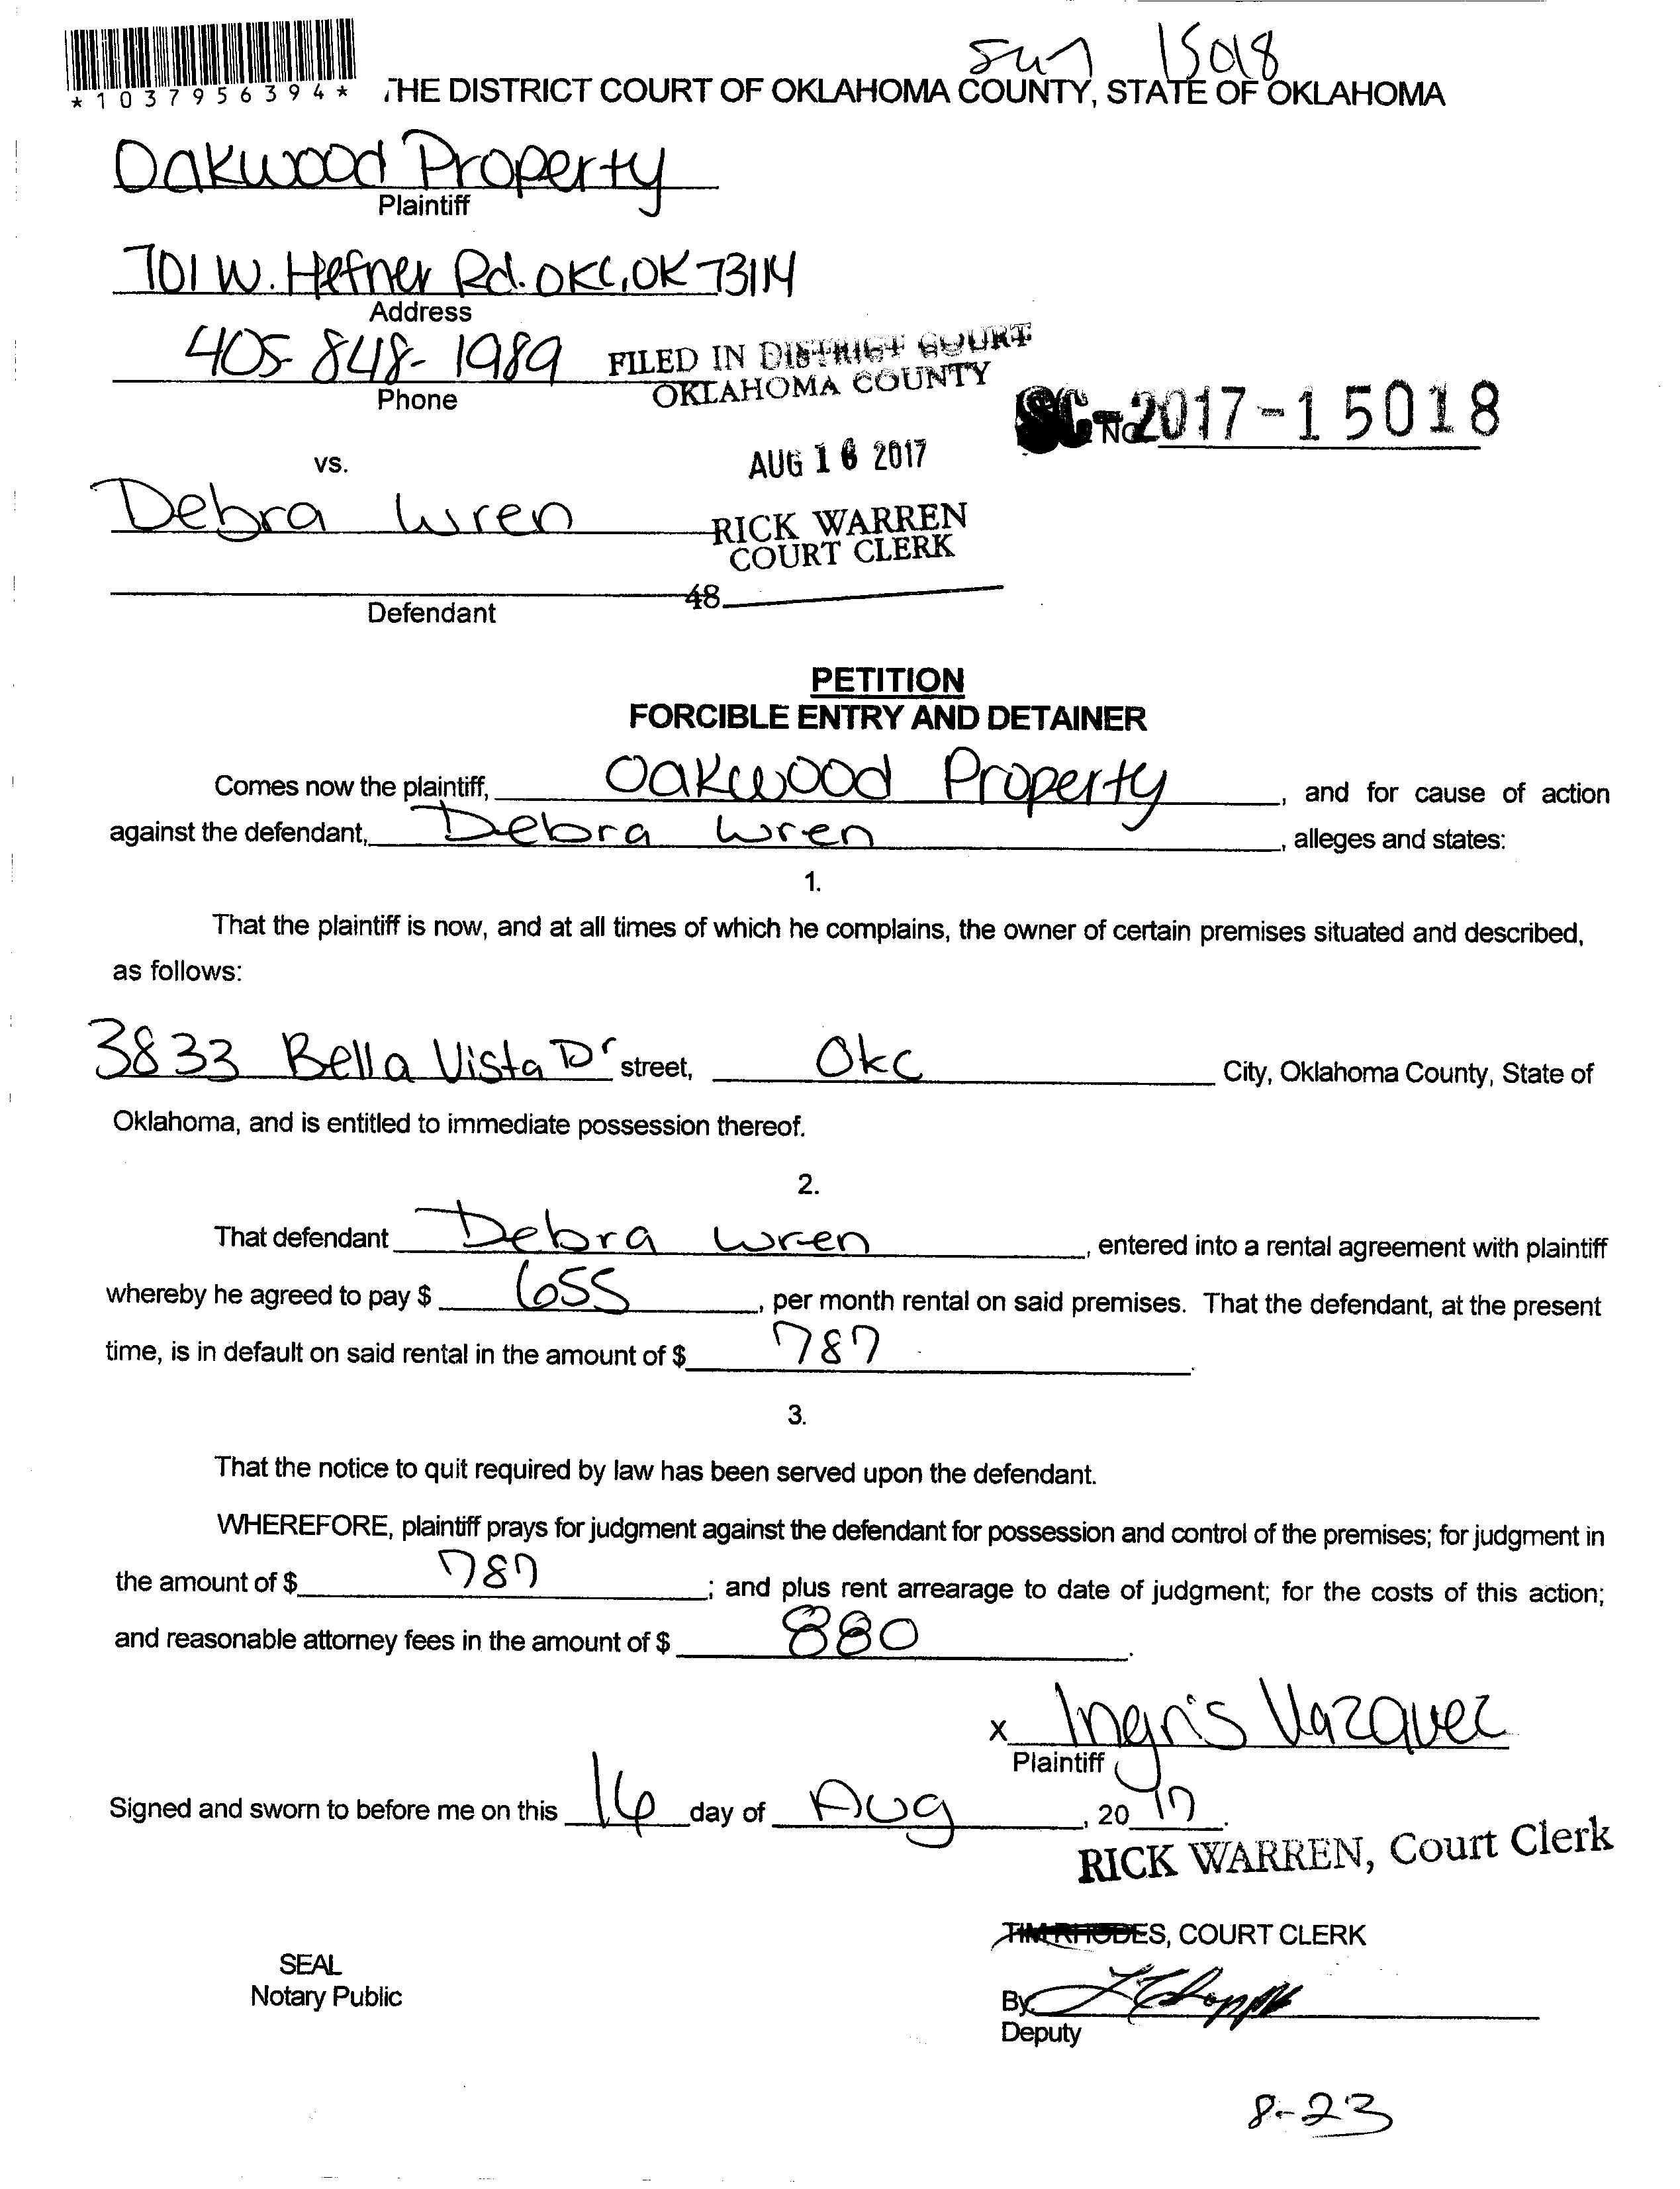 15018
*1037956394* THE DISTRICT COURT OF OKLAHOMA COUNTY, STATE OF OKLAHOMA
Oakwood Property
Plaintiff
701 W. Hefner Rd. OKC, OK 73114
Address
405-848-1989
Phone
FILED IN DISTRICT COURT
OKLAHOMA COUNTY
SC-2017-15018
No.
AUG 16 2017
vs.
Debra Wren
RICK WARREN
COURT CLERK
48
Defendant
PETITION
FORCIBLE ENTRY AND DETAINER
Comes now the plaintiff, Oakwood Property, and for cause of action
against the defendant, Debra Wren, alleges and states:
1.
That the plaintiff is now, and at all times of which he complains, the owner of certain premises situated and described,
as follows:
3833 Bella Vista Dr street, Okc City, Oklahoma County, State of
Oklahoma, and is entitled to immediate possession thereof.
2.
That defendant Debra Wren, entered into a rental agreement with plaintiff
whereby he agreed to pay $ 655, per month rental on said premises. That the defendant, at the present
time, is in default on said rental in the amount of $ 787.
3.
That the notice to quit required by law has been served upon the defendant.
WHEREFORE, plaintiff prays for judgment against the defendant for possession and control of the premises; for judgment in
the amount of $ 787; and plus rent arrearage to date of judgment; for the costs of this action;
and reasonable attorney fees in the amount of $ 880.
x Ingris Vazquez
Plaintiff
Signed and sworn to before me on this 16 day of Aug, 20 17.
RICK WARREN, Court Clerk
TIM RHODES, COURT CLERK
SEAL
Notary Public
By
Deputy
8-23